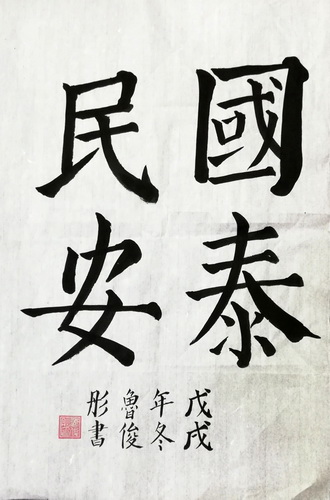 國泰
民安
戊戌
年冬
魯俊
彤書